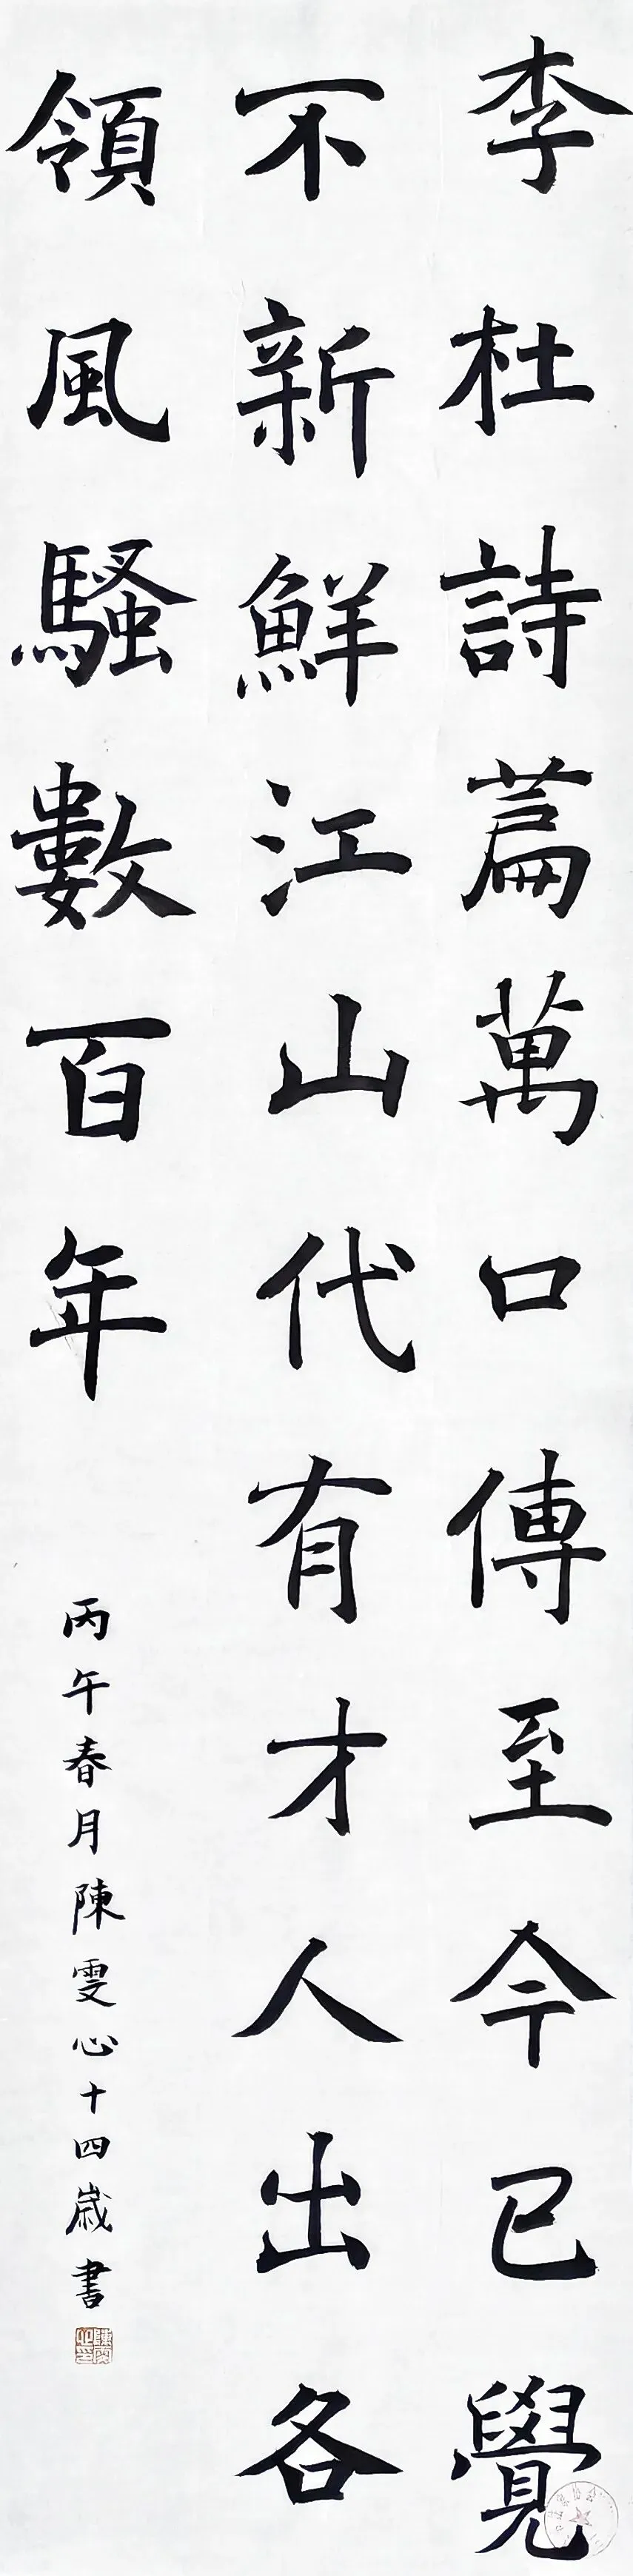 李杜詩篇萬口傳至今已覺
不新鮮江山代有才人出各
領風騷數百年
丙午春月陳雯心十四歲書